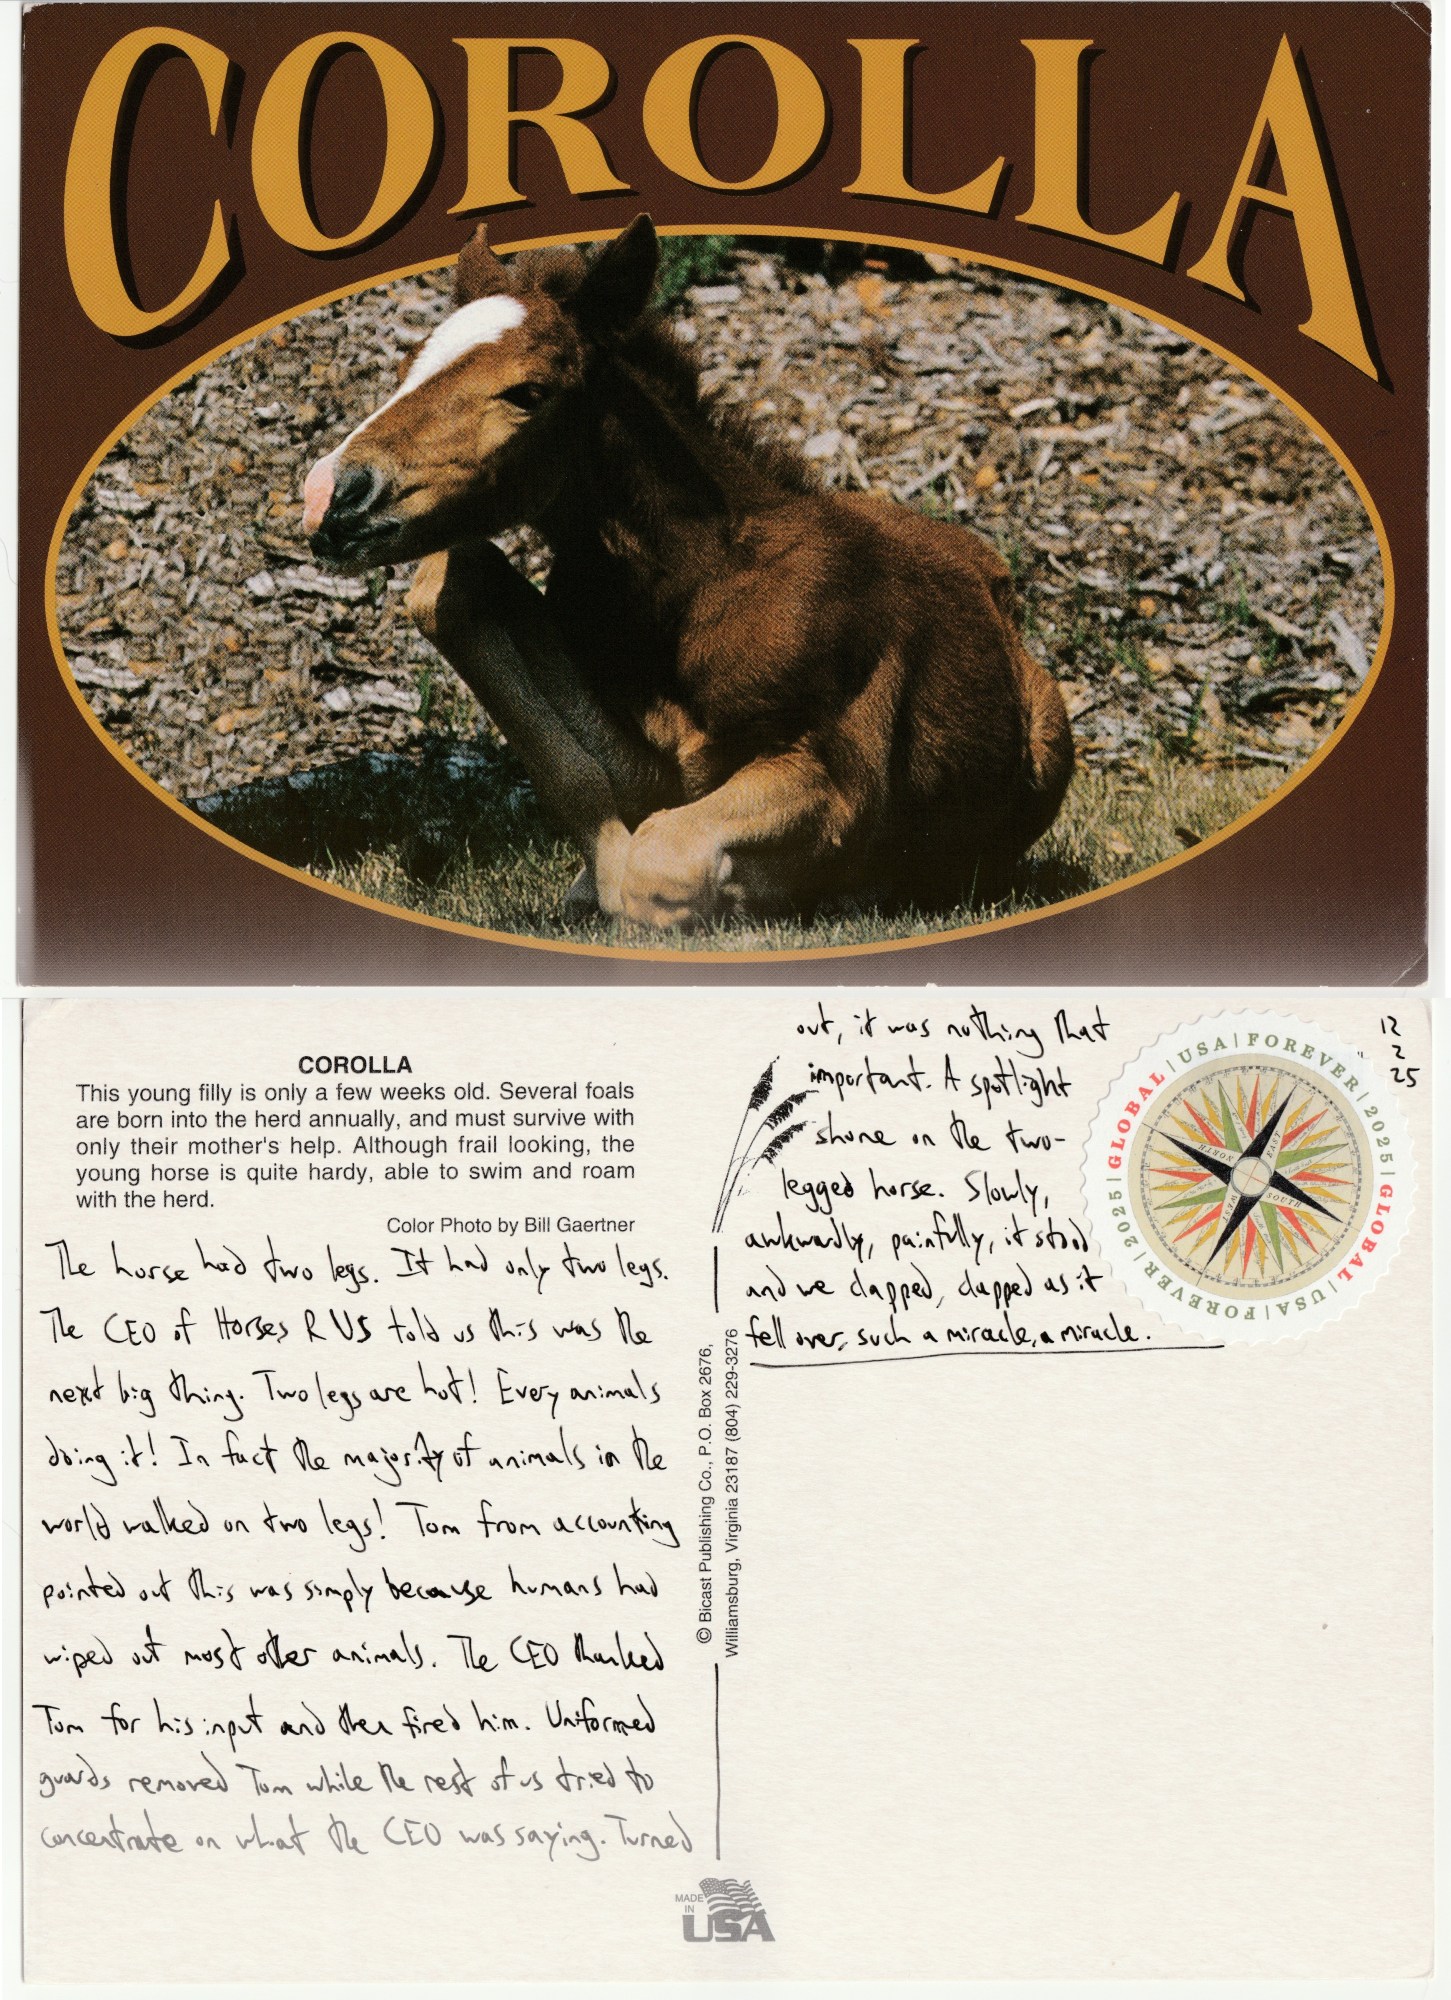 COROLLA
COROLLA
This young filly is only a few weeks old. Several foals
are born into the herd annually, and must survive with
only their mother's help. Although frail looking, the
young horse is quite hardy, able to swim and roam
with the herd.
Color Photo by Bill Gaertner
The horse had two legs. It had only two legs.
The CEO of Horses R US told us this was the
next big thing. Two legs are hot! Every animals
doing it! In fact the majority of animals in the
world walked on two legs! Tom from accounting
pointed out this was simply because humans had
wiped out most other animals. The CEO thanked
Tom for his input and then fired him. Uniformed
guards removed Tom while the rest of us tried to
concentrate on what the CEO was saying. Turned
out, it was nothing that
important. A spotlight
shone on the two-
legged horse. Slowly,
awkwardly, painfully, it stood
and we clapped, clapped as it
fell over, such a miracle, a miracle.
12
2
25
GLOBAL | USA | FOREVER | 2025 | GLOBAL | USA | FOREVER | 2025 |
NORTH
EAST
SOUTH
WEST
© Bicast Publishing Co., P.O. Box 2676,
Williamsburg, Virginia 23187 (804) 229-3276
MADE
IN
USA